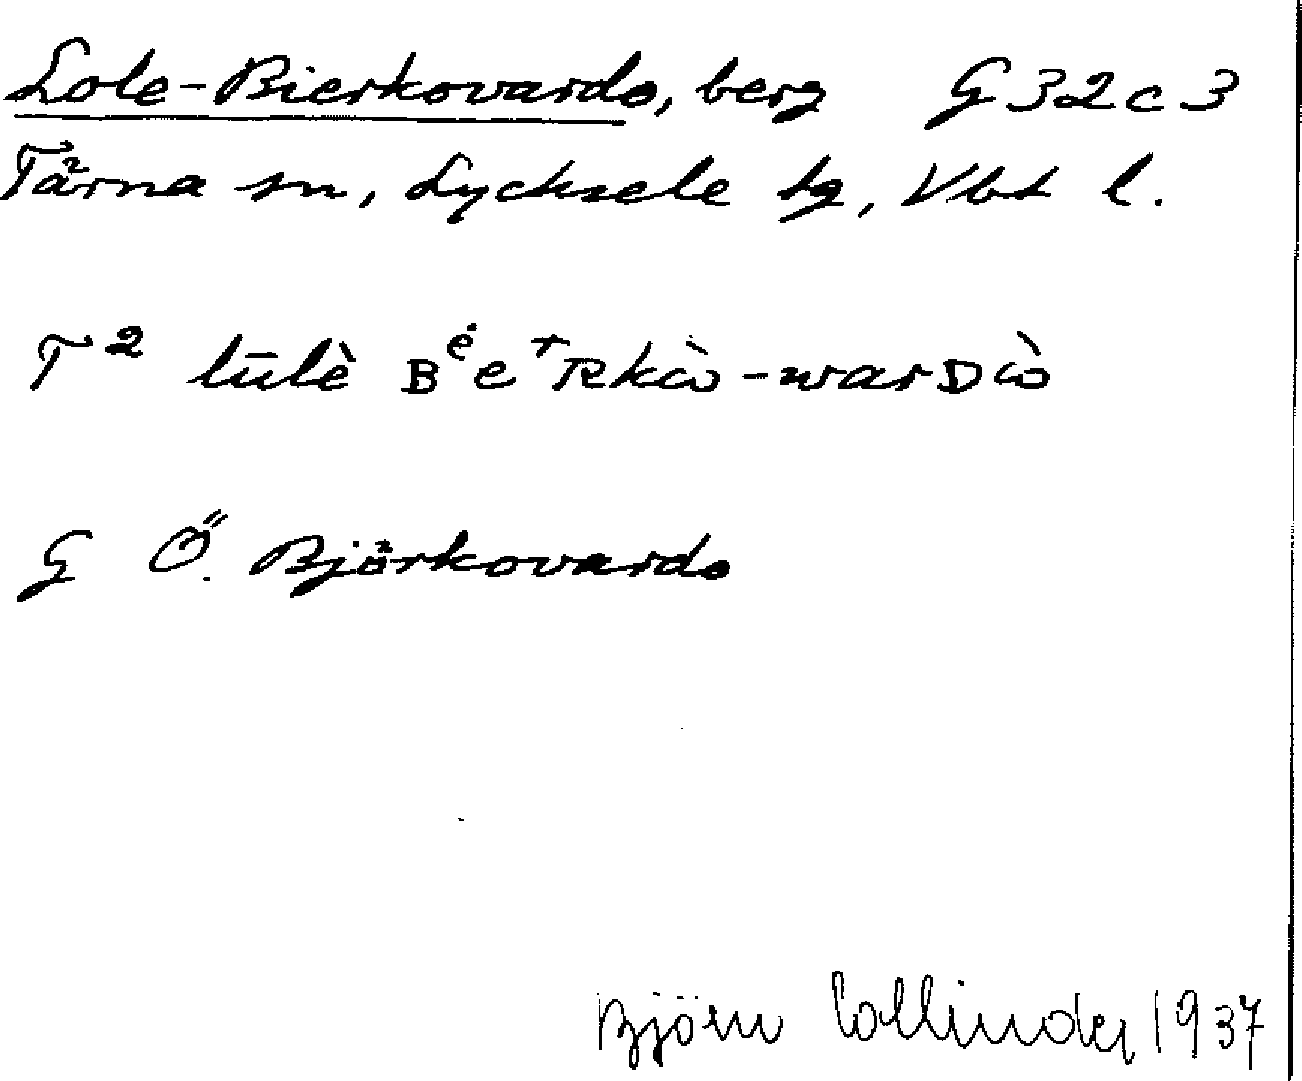 Lole-Bierkovardo, berg G32c3
Tärna sn, Lycksele lg, Vbt l.
T² lūlè
G Ö. Björkovardo
Björn Collinder 1937